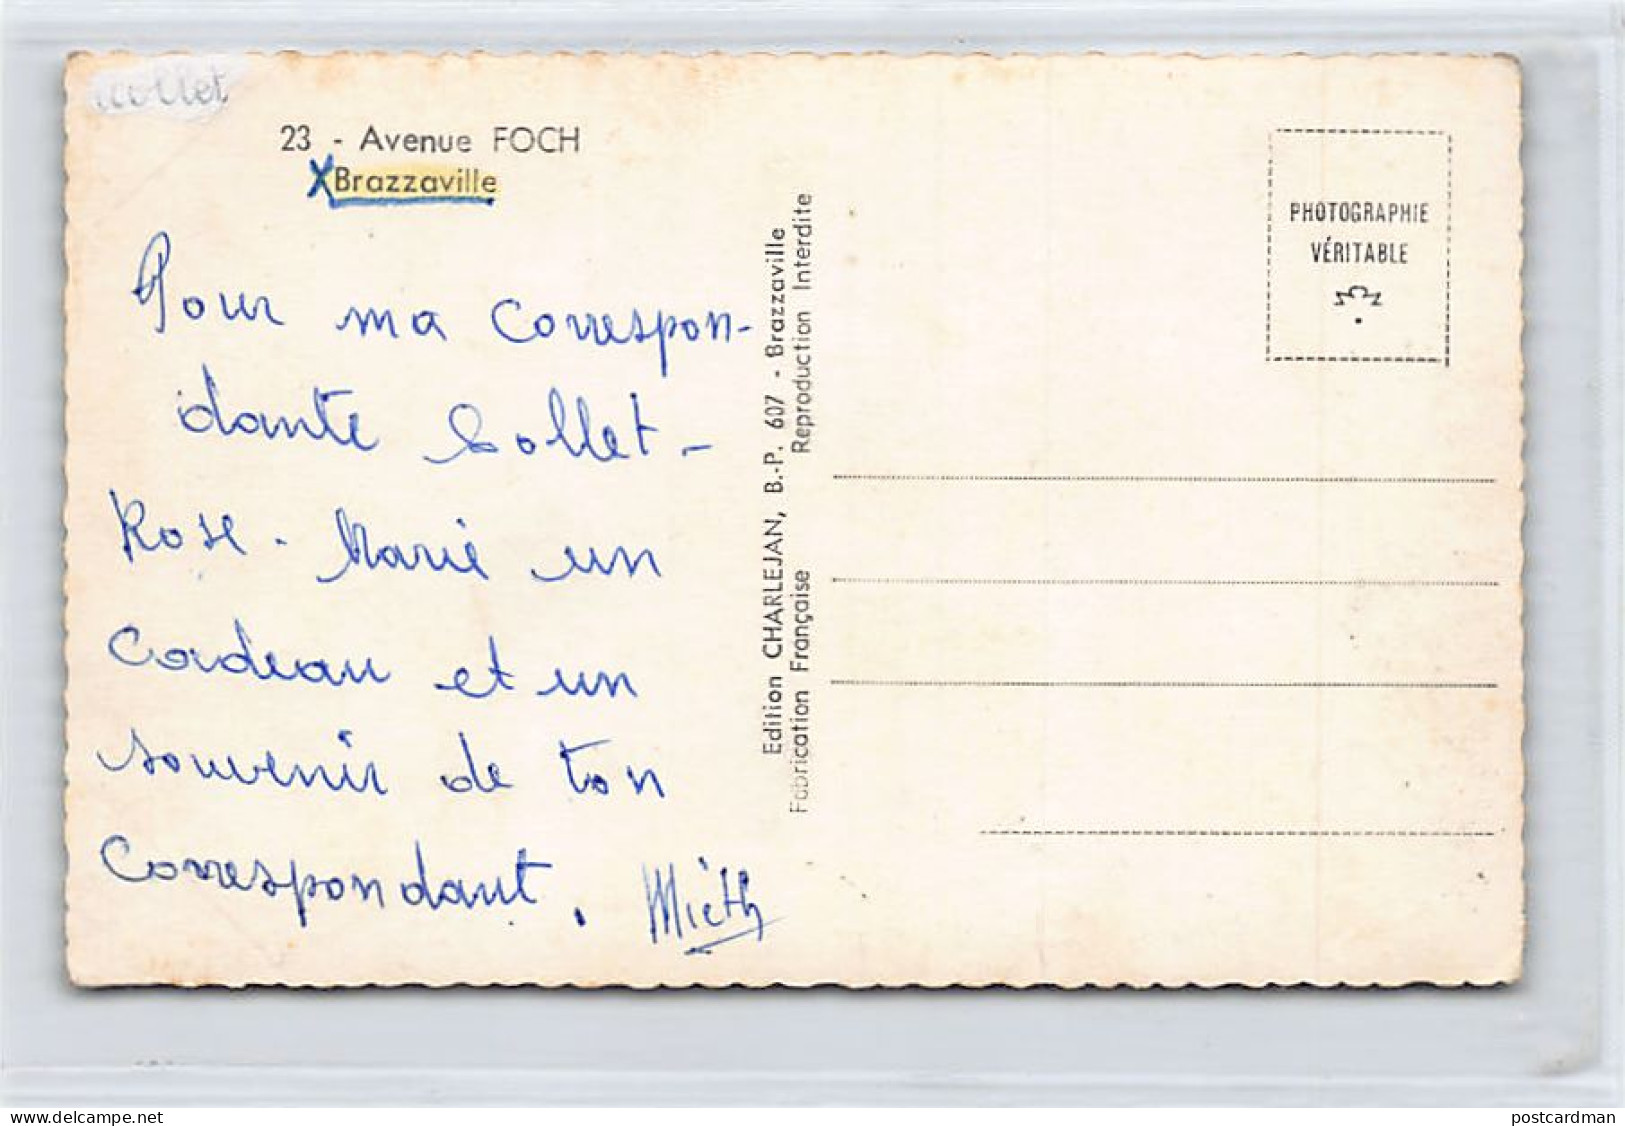 collet
23 - Avenue FOCH
X Brazzaville
Pour ma correspon-
dante Collet -
Rose - Marie un
Cadeau et un
souvenir de ton
Correspondant.
Edition CHARLEJAN, B.-P. 607 - Brazzaville
Fabrication Française Reproduction Interdite
PHOTOGRAPHIE
VÉRITABLE
www.delcampe.net
postcardman